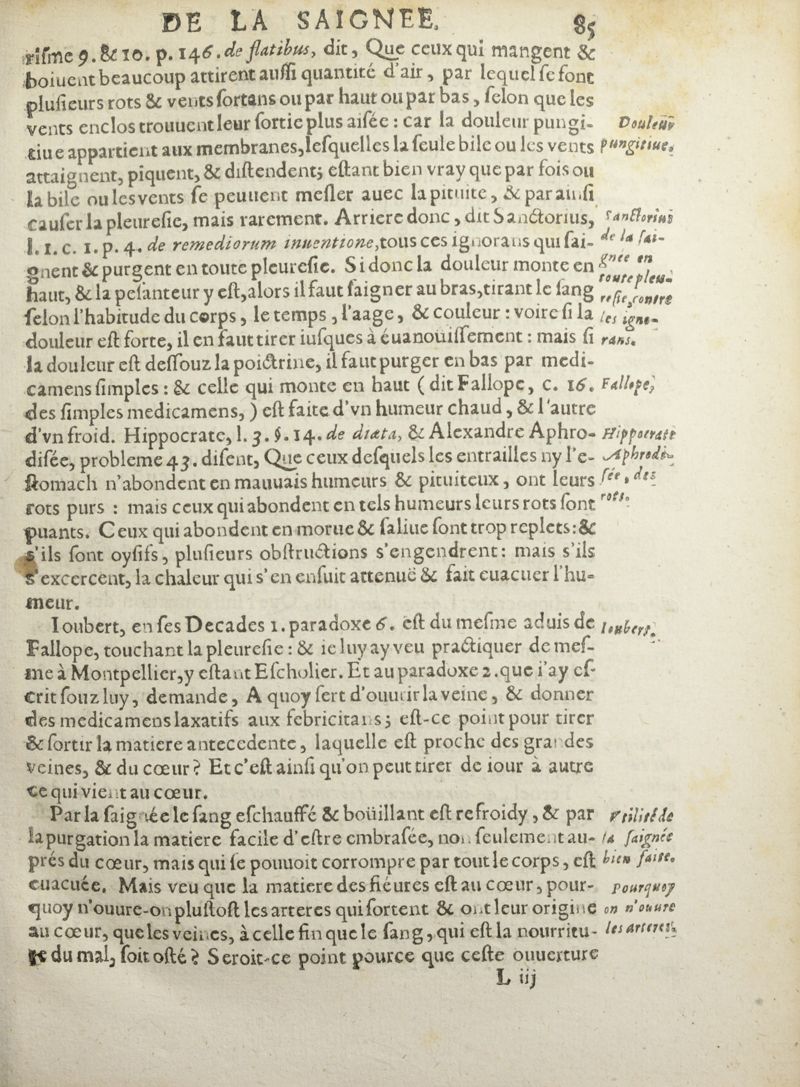 DE LA SAIGNEE. 85
risme 9. & 10. p. 146. de flatibus, dit, Que ceux qui mangent &
boiuent beaucoup attirent auſſi quantité d'air, par lequel ſe font
pluſieurs rots & vents ſortans ou par haut ou par bas, ſelon que les
vents enclos trouuent leur ſortie plus aiſée : car la douleur pungi-
tiue appartient aux membranes, leſquelles la ſeule bile ou les vents
attaignent, piquent, & diſtendent; eſtant bien vray que par fois ou
la bile ou les vents ſe peuuent meſler auec la pituite, & par ainſi
cauſer la pleureſie, mais rarement. Arriere donc, dit Sanctorius,
l. 1. c. 1. p. 4. de remediorum inuentione, tous ces ignorans qui ſai-
gnent & purgent en toute pleureſie. Si donc la douleur monte en
haut, & la peſanteur y eſt, alors il faut ſaigner au bras, tirant le ſang
ſelon l'habitude du corps, le temps, l'aage, & couleur : voire ſi la
douleur eſt forte, il en faut tirer iuſques à éuanouiſſement : mais ſi
la douleur eſt deſſouz la poictrine, il faut purger en bas par medi-
camens ſimples : & celle qui monte en haut (dit Fallope, c. 16.
des ſimples medicamens,) eſt faite d'vn humeur chaud, & l'autre
d'vn froid. Hippocrate, l. 3. §. 14. de diæta, & Alexandre Aphro-
diſée, probleme 43. diſent, Que ceux deſquels les entrailles ny l'e-
ſtomach n'abondent en mauuais humeurs & pituiteux, ont leurs
rots purs : mais ceux qui abondent en tels humeurs leurs rots ſont
puants. Ceux qui abondent en morue & ſaliue ſont trop replets : &
s'ils ſont oyſifs, pluſieurs obſtructions s'engendrent : mais s'ils
s'excercent, la chaleur qui s'en enſuit attenuë & fait euacuer l'hu-
meur.
Ioubert, en ſes Decades 1. paradoxe 6. eſt du meſme aduis de
Fallope, touchant la pleureſie : & ie luy ay veu practiquer de meſ-
me à Montpellier, y eſtant Eſcholier. Et au paradoxe 2. que i'ay eſ-
crit ſouz luy, demande, A quoy ſert d'ouurir la veine, & donner
des medicamens laxatifs aux febricitans; eſt-ce point pour tirer
& ſortir la matiere antecedente, laquelle eſt proche des grandes
veines, & du cœur ? Et c'eſt ainſi qu'on peut tirer de iour à autre
ce qui vient au cœur.
Par la ſaignée le ſang eſchauffé & boüillant eſt refroidy, & par
la purgation la matiere facile d'eſtre embraſée, non ſeulement au-
prés du cœur, mais qui ſe pouuoit corrompre par tout le corps, eſt
euacuée. Mais veu que la matiere des fiéures eſt au cœur, pour-
quoy n'ouure-on pluſtoſt les arteres qui ſortent & ont leur origine
au cœur, que les veines, à celle fin que le ſang, qui eſt la nourritu-
re du mal, ſoit oſté ? Seroit-ce point pource que ceſte ouuerture
L iij
Douleur
pungitiue.
Sanctorius
de la ſai-
gnee en
toute pleu-
reſie, contre
les igno-
rans.
Fallope,
Hippocrate
Aphrodi-
ſée, des
rots.
Ioubert.
Vtilité de
la ſaignée
bien faite.
Pourquoy
on n'ouure
les arteres.